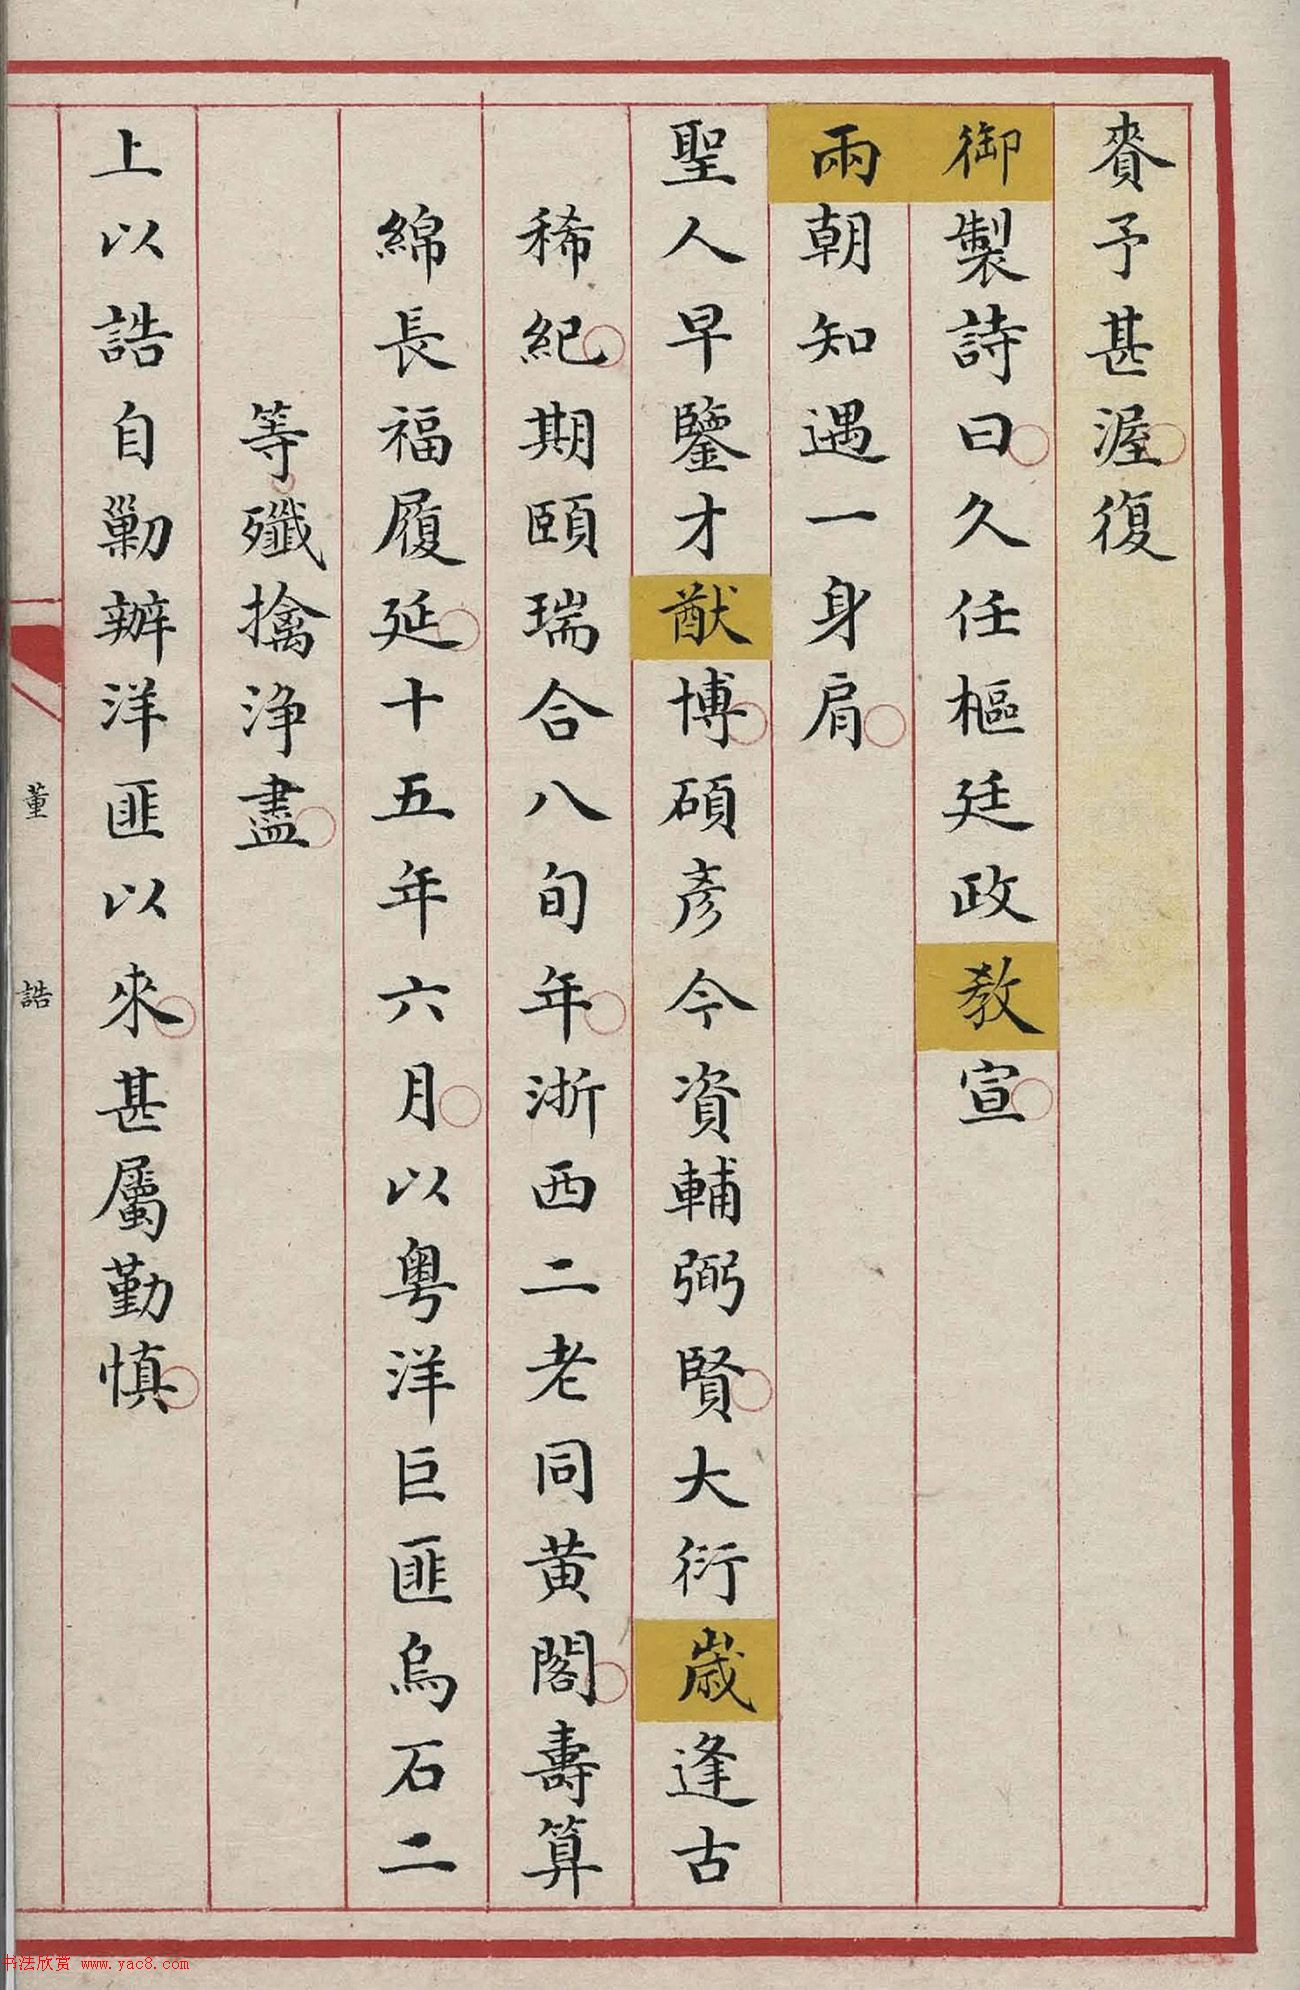 賚予甚渥復
御製詩曰久任樞廷政教宣
兩朝知遇一身肩
聖人早鑒才猷博碩彥今資輔弼賢大衍歲逢古
稀紀期頤瑞合八旬年浙西二老同黃閣壽算
綿長福履延十五年六月以粵洋巨匪烏石二
等殲擒淨盡
上以誥自剿辦洋匪以來甚屬勤慎
董誥
书法欣赏 www.yac8.com